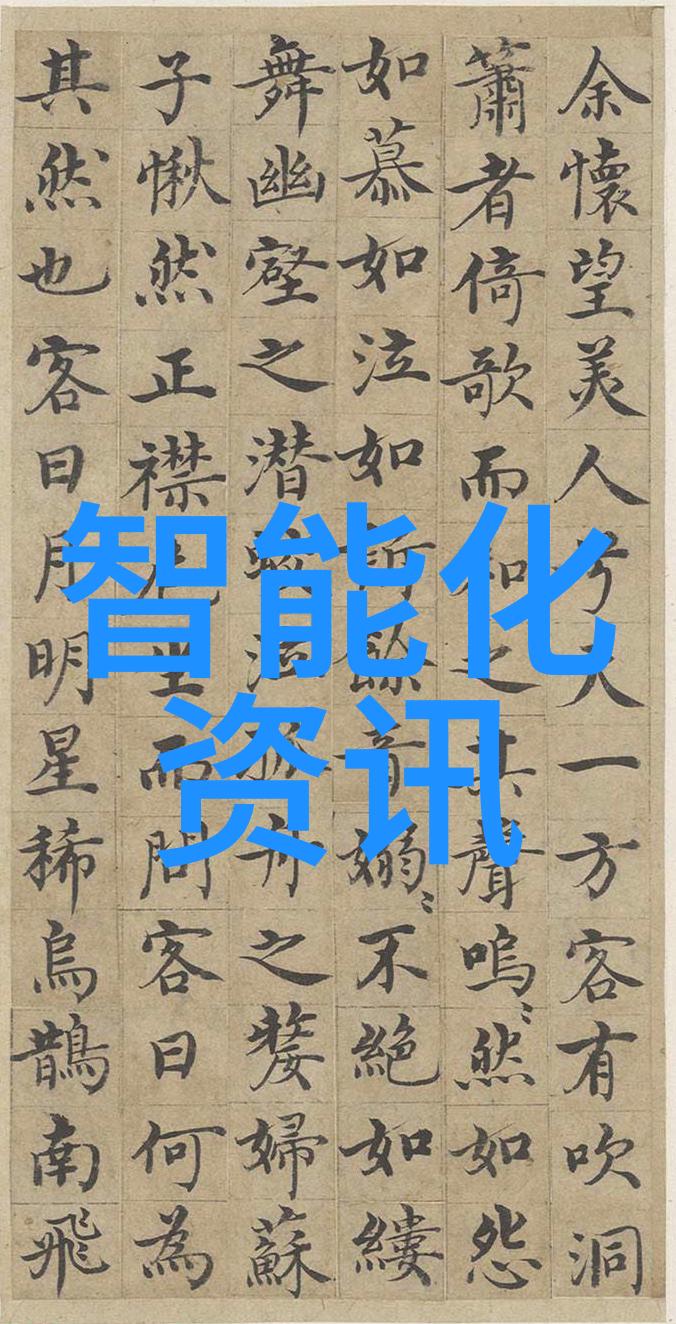 余懷望美人兮天一方客有吹洞
簫者倚歌而和之其聲嗚〻然如怨
如慕如泣如訴餘音嫋〻不絕如縷
舞幽壑之潛蛟泣孤舟之嫠婦蘇
子愀然正襟危坐而問客曰何為
其然也客曰月明星稀烏鵲南飛
智能化
资讯